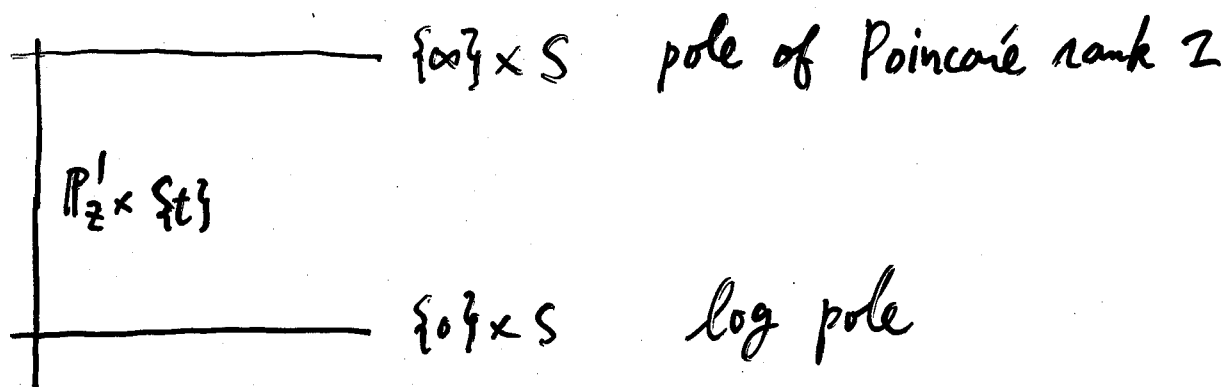 {∞} × S pole of Poincaré rank 1
ℙ¹_z × {t}
{0} × S log pole